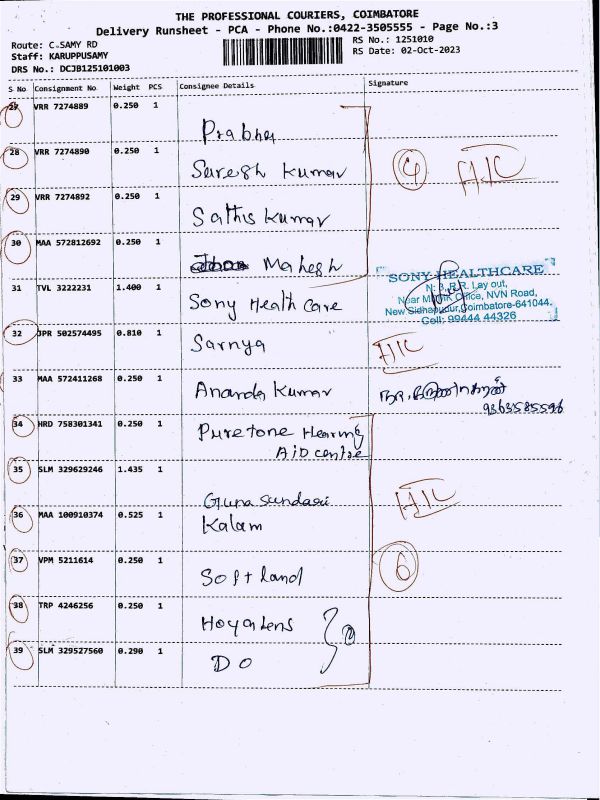 THE PROFESSIONAL COURIERS, COIMBATORE
Delivery Runsheet - PCA - Phone No.:0422-3505555 - Page No.:3
Route: C.SAMY RD
RS No.: 1251010
Staff: KARUPPUSAMY
RS Date: 02-Oct-2023
DRS No.: DCJB125101003
S No Consignment No Weight PCS Consignee Details Signature
27 VRR 7274889 0.250 1
Prabha
28 VRR 7274890 0.250 1
Suresh Kumar
4 H/C
29 VRR 7274892 0.250 1
Sathis Kumar
30 MAA 572812692 0.250 1
Mahesh
31 TVL 3222231 1.400 1
Sony Health Care
SONY HEALTHCARE
N: 3, R.R. Lay out,
Near Office, NVN Road,
New Sidhapudur, Coimbatore-641044.
Cell: 99444 44326
32 JPR 502574495 0.810 1
Sarnya
H/C
33 MAA 572411268 0.250 1
Ananda Kumar
9363585596
34 HRD 758301341 0.250 1
Puretone Hearing
AiD centre
35 SLM 329629246 1.435 1
Guna Sundari
H/C
36 MAA 100910374 0.525 1
Kalam
37 VPM 5211614 0.250 1
Soft land
6
38 TRP 4246256 0.250 1
Hoya lens
39 SLM 329527560 0.290 1
DO